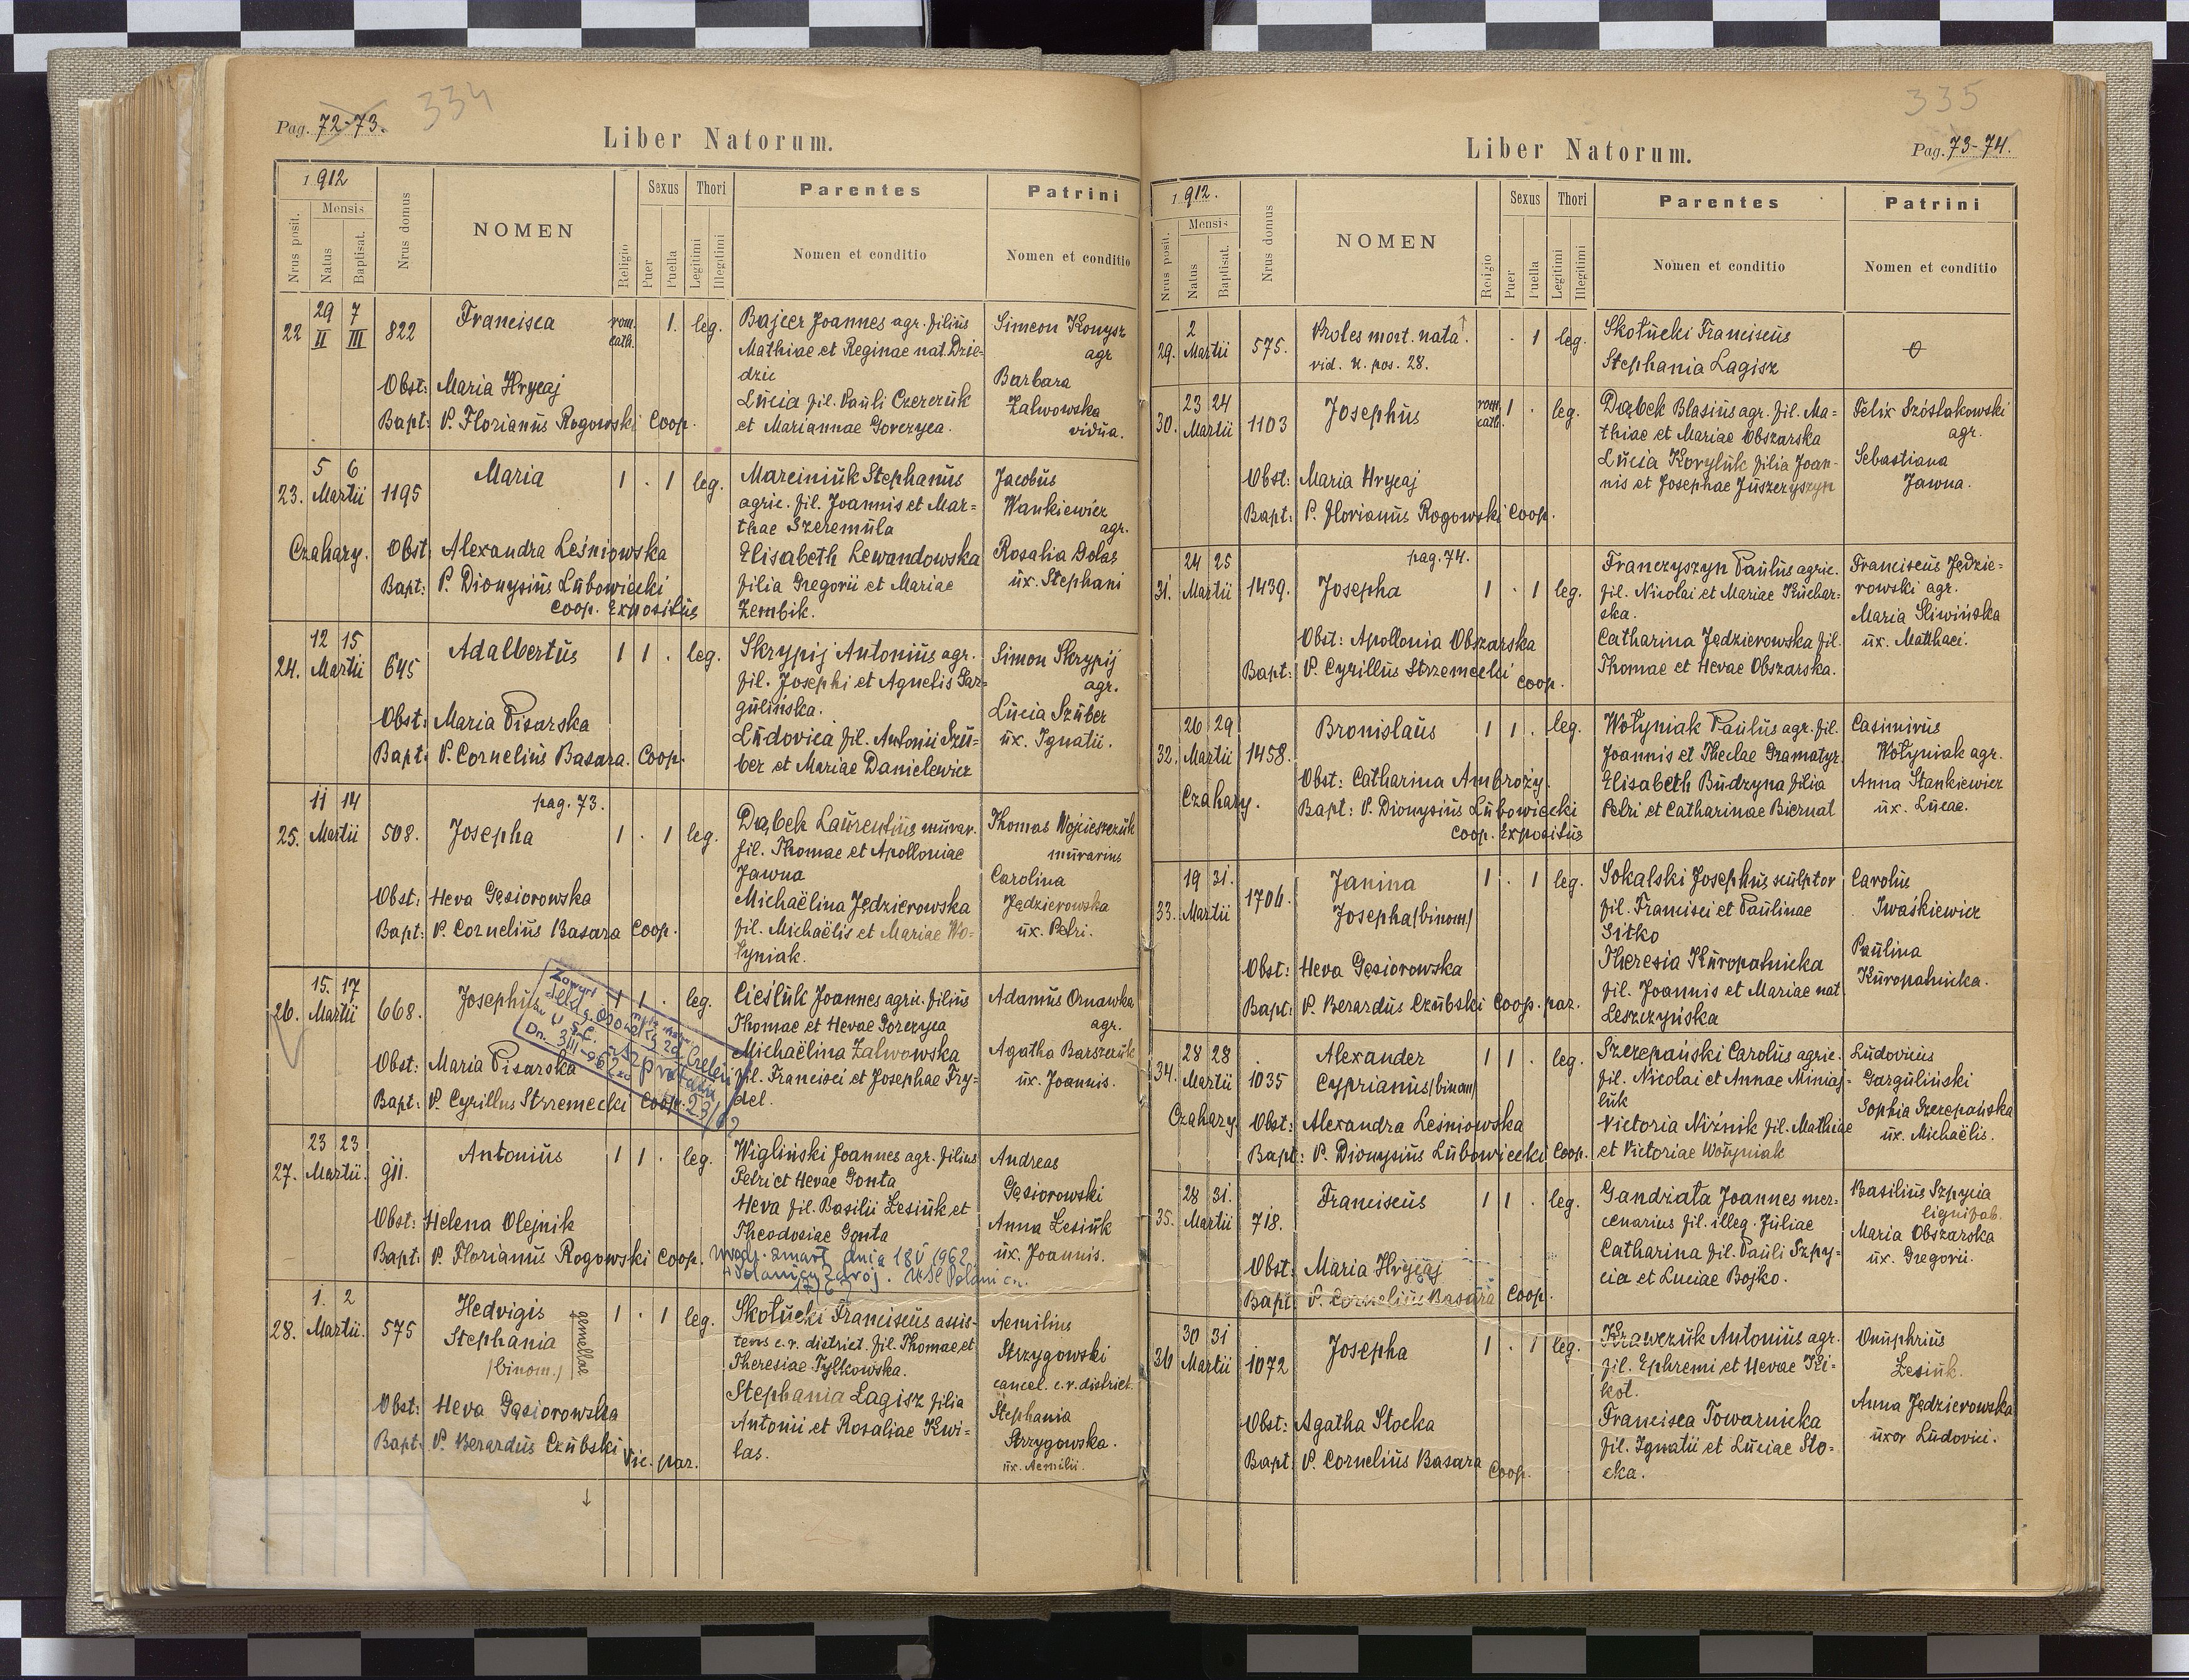 334
Pag. 72-73.
Liber Natorum.
1912
Nrus posit.
Mensis
Natus
Baptisat.
Nrus domus
NOMEN
Religio
Sexus
Puer
Puella
Thori
Legitimi
Illegitimi
Parentes
Nomen et conditio
Patrini
Nomen et conditio
22 29 II 7 III 822 Francisca rom. cath. 1. leg.
Bajcer Joannes agr. filius
Mathiae et Reginae nat. Dzie-
dzic
Lucia fil. Pauli Czerczuk
et Mariannae Gorczyca.
Simeon Konysz
agr
Barbara
Zalwowska
vidua.
Obst: Maria Hrycaj
Bapt: P. Florianus Rogowski Coop.
23. 5 6 Martii 1195 Maria 1 . 1 leg.
Czahary.
Marciniuk Stephanus
agric. fil. Joannis et Mar-
thae Szeremula
Elisabeth Lewandowska
filia Gregorii et Mariae
Zembik.
Jacobus
Wankiewicz
agr.
Rosalia Dolas
ux. Stephani
Obst: Alexandra Leśniowska
Bapt: P. Dionysius Lubowiecki
Coop. Expositus
24. 12 15 Martii 645 Adalbertus 1 1 . leg.
Skrypij Antonius agr.
fil. Josephi et Agnetis Gar-
gulińska.
Ludovica fil. Antonii Szu-
ber et Mariae Danielewicz
Simon Skrypij
agr.
Lucia Szuber
ux. Ignatii.
Obst: Maria Pisarska
Bapt: P. Cornelius Basara. Coop.
pag. 73.
25. 11 14 Martii 508. Josepha 1 . 1 leg.
Dąbek Laurentius murar.
fil. Thomae et Apolloniae
Jawna
Michaëlina Jędzierowska
fil. Michaëlis et Mariae Wo-
łyniak.
Thomas Wojcieszczuk
murarius
Carolina
Jędzierowska
ux. Petri.
Obst: Heva Gąsiorowska
Bapt: P. Cornelius Basara Coop.
26. 15. 17 Martii 668. Josephus 1 1 . leg.
Cieśluk Joannes agric. filius
Thomae et Hevae Gorczyca
Michaëlina Zalwowska
fil. Francisci et Josephae Fry-
del.
Adamus Ornawka
agr.
Agatha Barszczuk
ux. Joannis.
Obst: Maria Pisarska
Bapt: P. Cyrillus Strzemecki Coop.
27. 23 23 Martii. 911. Antonius 1 1 . leg.
Wigliński Joannes agr. filius
Petri et Hevae Gonta
Heva fil. Basilii Lesiuk et
Theodosiae Gonta
Andreas
Gąsiorowski
Anna Lesiuk
ux. Joannis.
Obst: Helena Olejnik
Bapt: P. Florianus Rogowski Coop.
zmarł dnia 18 V 1962
28. 1. 2 Martii. 575 Hedvigis
Stephania
/binom./
gemellae
1 . 1 leg.
Skołucki Franciscus assis-
tens c.r. district. fil. Thomae et
Theresiae Tylkowska.
Stephania Lagisz filia
Antonii et Rosaliae Kwi-
las.
Aemilius
Strzygowski
cancel. c.r. district.
Stephania
Strzygowska.
ux. Aemilii.
Obst: Heva Gąsiorowska
Bapt: P. Berardus Czubski Vic. par.
335
Liber Natorum.
Pag. 73-74.
1912.
Nrus posit.
Mensis
Natus
Baptisat.
Nrus domus
NOMEN
Religio
Sexus
Puer
Puella
Thori
Legitimi
Illegitimi
Parentes
Nomen et conditio
Patrini
Nomen et conditio
29. 2 Martii 575. Proles mort. nata.
vid. N. pos. 28.
. 1 leg.
Skołucki Franciscus
Stephania Lagisz
30. 23 24 Martii 1103 Josephus rom. cath. 1 . leg.
Dąbek Blasius agr. fil. Ma-
thiae et Mariae Obszarska
Lucia Koryluk filia Joan-
nis et Josephae Juszczyszyn
Felix Szóstakowski
agr.
Sebastiana
Jawna.
Obst: Maria Hrycaj
Bapt: P. Florianus Rogowski Coop.
pag. 74.
31. 24 25 Martii 1439. Josepha 1 . 1 leg.
Franczyszyn Paulus agric.
fil. Nicolai et Mariae Kuchar-
ska.
Catharina Jędzierowska fil.
Thomae et Hevae Obszarska.
Franciscus Jędzie-
rowski agr.
Maria Śliwińska
ux. Matthaei.
Obst: Apollonia Obszarska
Bapt: P. Cyrillus Strzemecki Coop.
32. 26 29 Martii 1458. Bronislaus 1 1 . leg.
Czahary.
Wołyniak Paulus agr. fil.
Joannis et Theclae Gramatyr.
Elisabeth Budzyna filia
Petri et Catharinae Biernat
Casimirus
Wołyniak agr.
Anna Stankiewicz
ux. Lucae.
Obst: Catharina Ambroży.
Bapt: P. Dionysius Lubowiecki
Coop. Expositus
33. 19 31. Martii 1706. Janina
Josepha /binom/
1 . 1 leg.
Sokalski Josephus sculptor
fil. Francisci et Paulinae
Sitko
Theresia Kuropatnicka
fil. Joannis et Mariae nat
Leszczyńska
Carolus
Iwaśkiewicz
Paulina
Kuropatnicka.
Obst: Heva Gąsiorowska
Bapt: P. Berardus Czubski Coop. par.
34. 28 28 Martii 1035 Alexander
Cyprianus /binom/
1 1 . leg.
Czahary.
Szczepański Carolus agric.
fil. Nicolai et Annae Miniaj-
luk
Victoria Niźnik fil. Mathiae
et Victoriae Wołyniak
Ludovicus
Garguliński
Sophia Szczepańska
ux. Michaëlis.
Obst: Alexandra Leśniowska
Bapt: P. Dionysius Lubowiecki Coop.
35. 28 31. Martii 718. Franciscus 1 1 . leg.
Gandziata Joannes mer-
cenarius fil. illeg. Juliae
Catharina fil. Pauli Szpy-
cia et Luciae Bojko.
Basilius Szpycia
lignifab.
Maria Obszarska
ux. Gregorii.
Obst: Maria Hrycaj
Bapt: P. Cornelius Basara Coop.
36 30 31 Martii 1072 Josepha 1 . 1 leg.
Krawczuk Antonius agr.
fil. Ephremi et Hevae Ki-
kot.
Francisca Towarnicka
fil. Ignatii et Luciae Sto-
cka.
Onuphrius
Lesiuk.
Anna Jędzierowska
uxor Ludovici.
Obst: Agatha Stocka
Bapt: P. Cornelius Basara Coop.